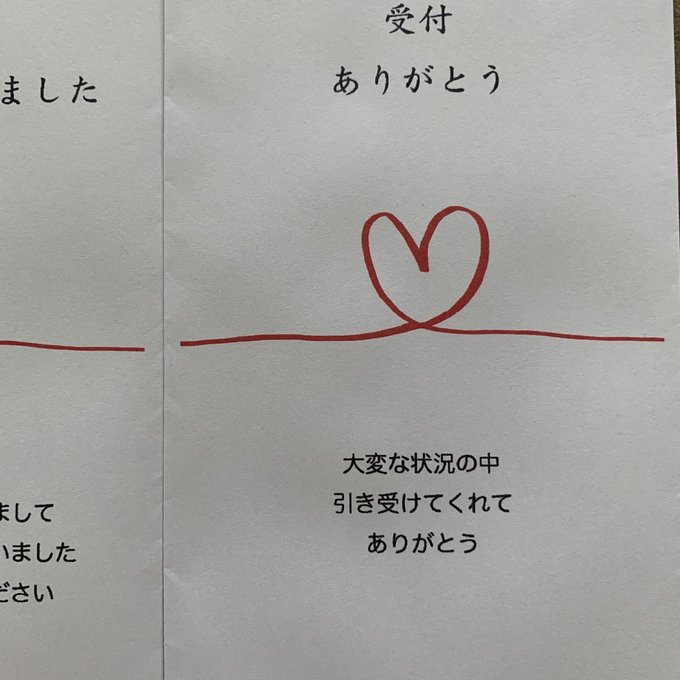 ました
まして
いました
ださい
受付
ありがとう
大変な状況の中
引き受けてくれて
ありがとう